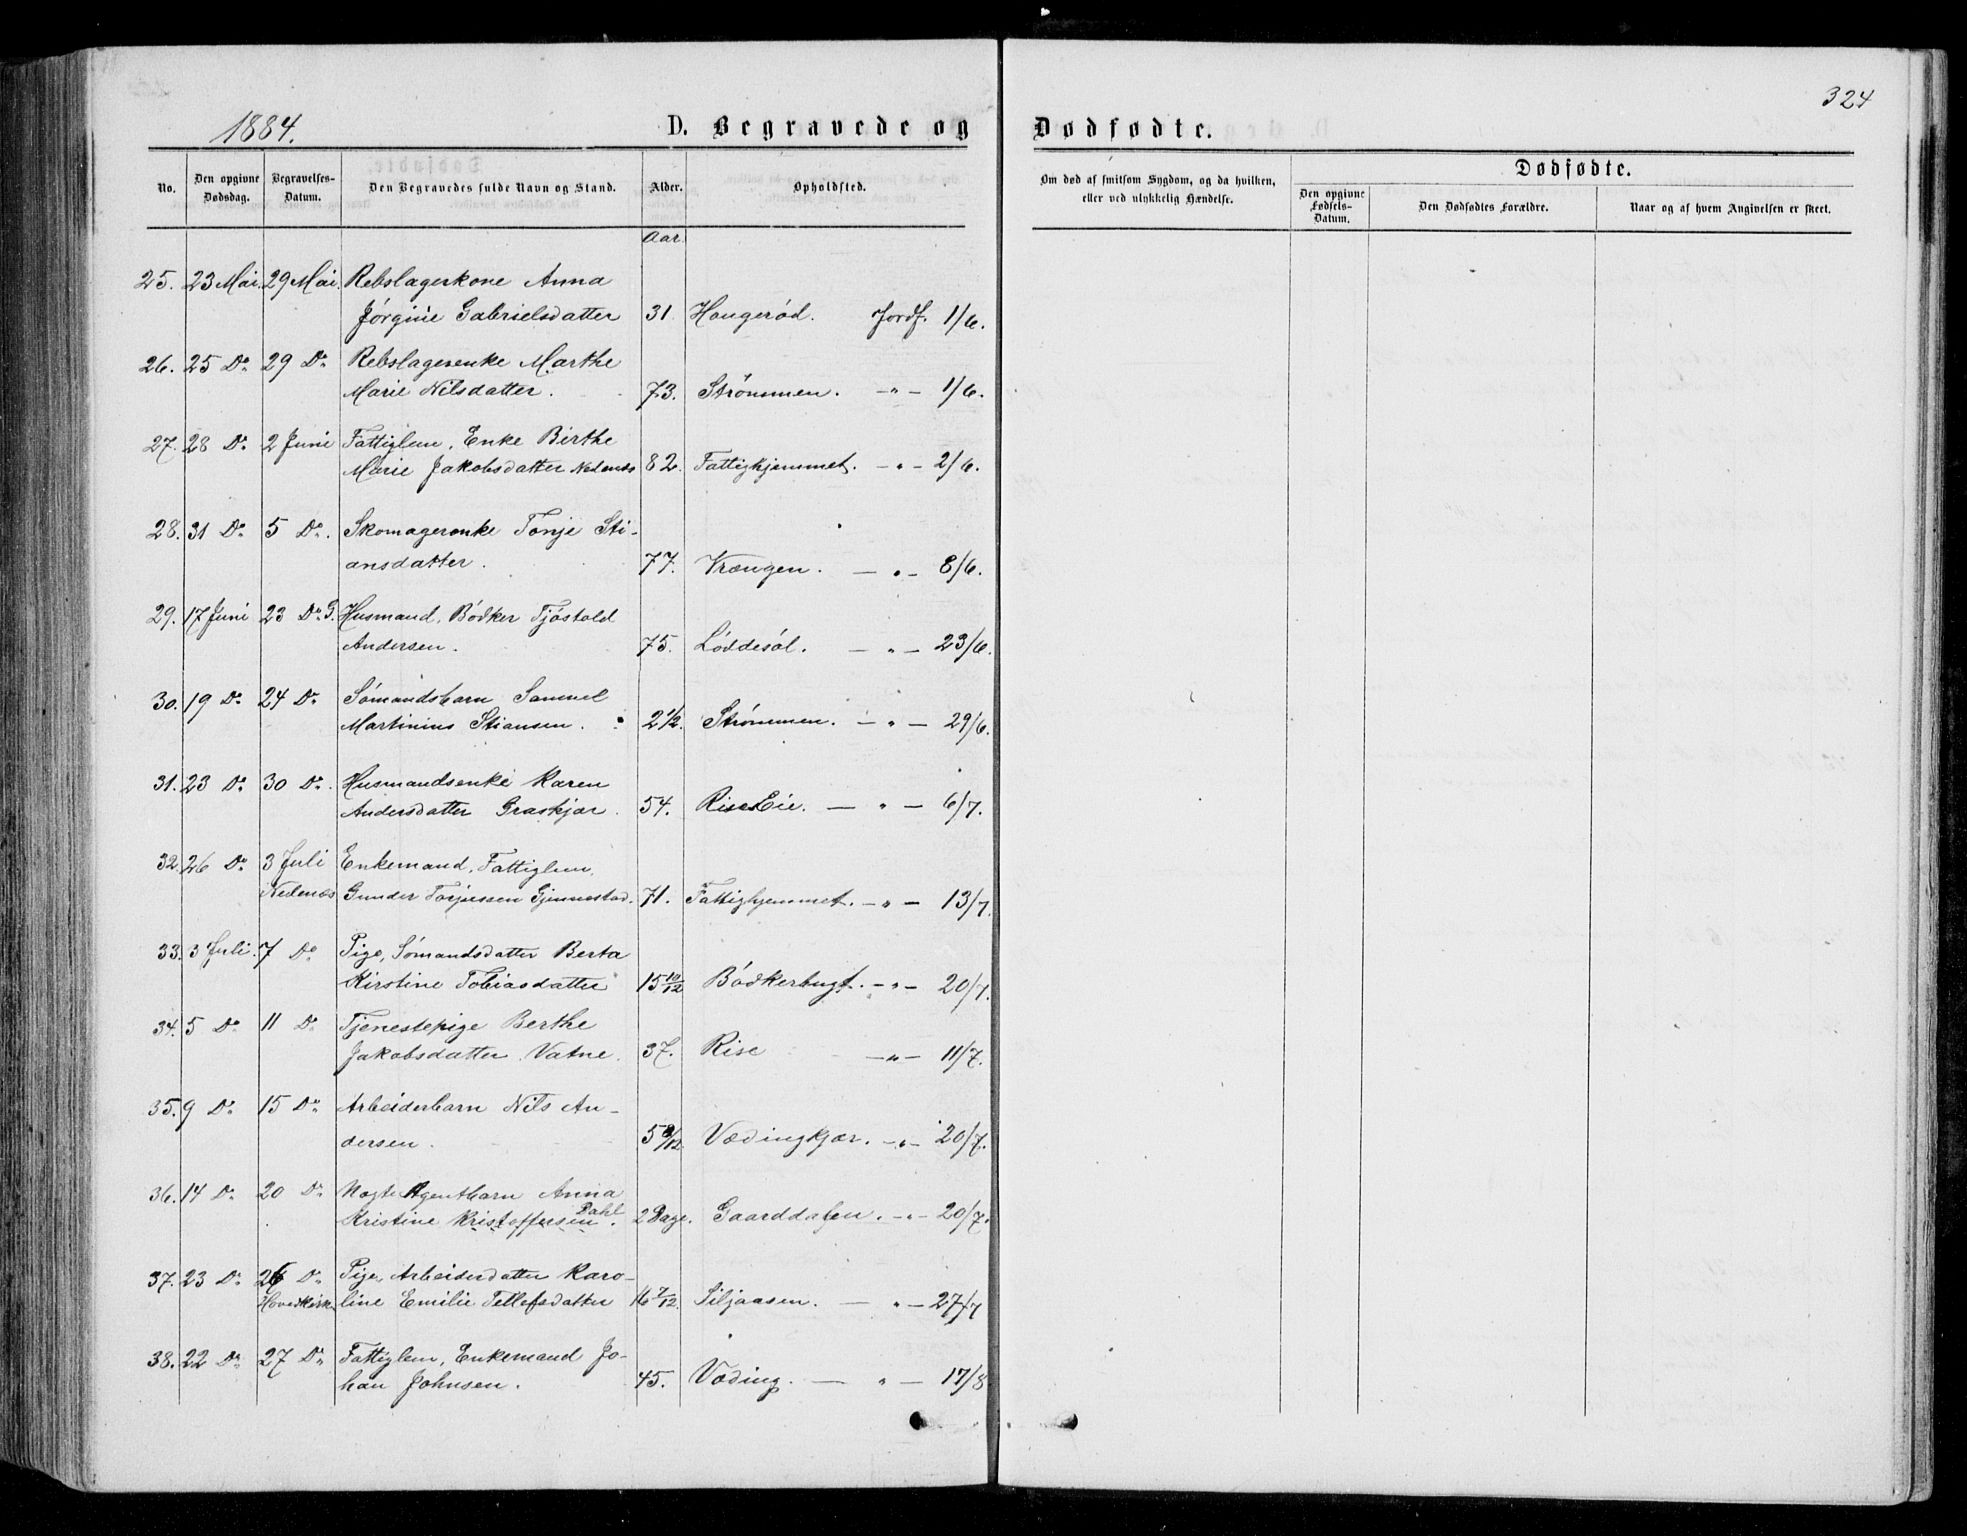 1884.
D. Begravede og Dødfødte.
324
No.
Den opgivne Dødsdag.
Begravelses-Datum.
Den Begravedes fulde Navn og Stand.
Alder.
Opholdssted.
Om død af smitsom Sygdom, og da hvilken,
eller ved ulykkelig Hændelse.
Dødfødte.
Den opgivne Fødsels-Datum.
Den Dødfødtes Forældre.
Naar og af hvem Angivelsen er skeet.
Aar.
25. 23 Mai. 29 Mai. Rebslagerkone Anna
Jørgine Gabrielsdatter 31 Haugerød. Jordf. 1/6.
26. 25 Do 29 Do Rebslagerenke Marthe
Marie Nilsdatter. 73. Strømmen. -"- 1/6.
27. 28 Do 2 Juni Fattiglem, Enke Birthe
Marie Jakobsdatter Nedenæs 82. Fattighjemmet. -"- 2/6.
28. 31 Do 5 Do. Skomagerenke Tonje Sti-
ansdatter. 77. Vrængen. -"- 8/6.
29. 17 Juni 23 Do Husmand, Bødker Tjøstold
Andersen. 75. Løddesøl. -"- 23/6.
30. 19 Do 24 Do Sømandsbarn Samuel
Martinius Stiansen. 2 1/2. Strømmen. -"- 29/6.
31. 23 Do 30 Do. Husmandsenke Karen
Andersdatter Graskjær. 54. Rise Eie. -"- 6/7.
32. 26 Do 3 Juli Enkemand, Fattiglem,
Nedenæs Gunder Torjussen Gjennestad. 71. Fattighjemmet. -"- 13/7.
33. 3 Juli. 7 Do Pige, Sømandsdatter Berta
Kirstine Tobiasdatter 15 10/12 Bødkerbugt. -"- 20/7.
34. 5 Do 11 Do Tjenestepige Berthe
Jakobsdatter Vatne. 37. Rise -"- 11/7.
35. 9 Do 15 Do Arbeiderbarn Nils An-
dersen. 5 8/12. Vædingkjær. -"- 20/7.
36. 14 Do 20 Do Agentbarn Anna
Kristine Kristoffersen Dahl. 2 Dage. Gaarddalen. -"- 20/7.
37. 23 Do 26 Do Pige, Arbeiderdatter Karo-
Hovedkirken line Emilie Tellefsdatter 16 7/12. Siljaasen. -"- 27/7
38. 22 Do 27 Do Fattiglem, Enkemand Jo-
han Johnsen. 45. Væding. -"- 17/8.